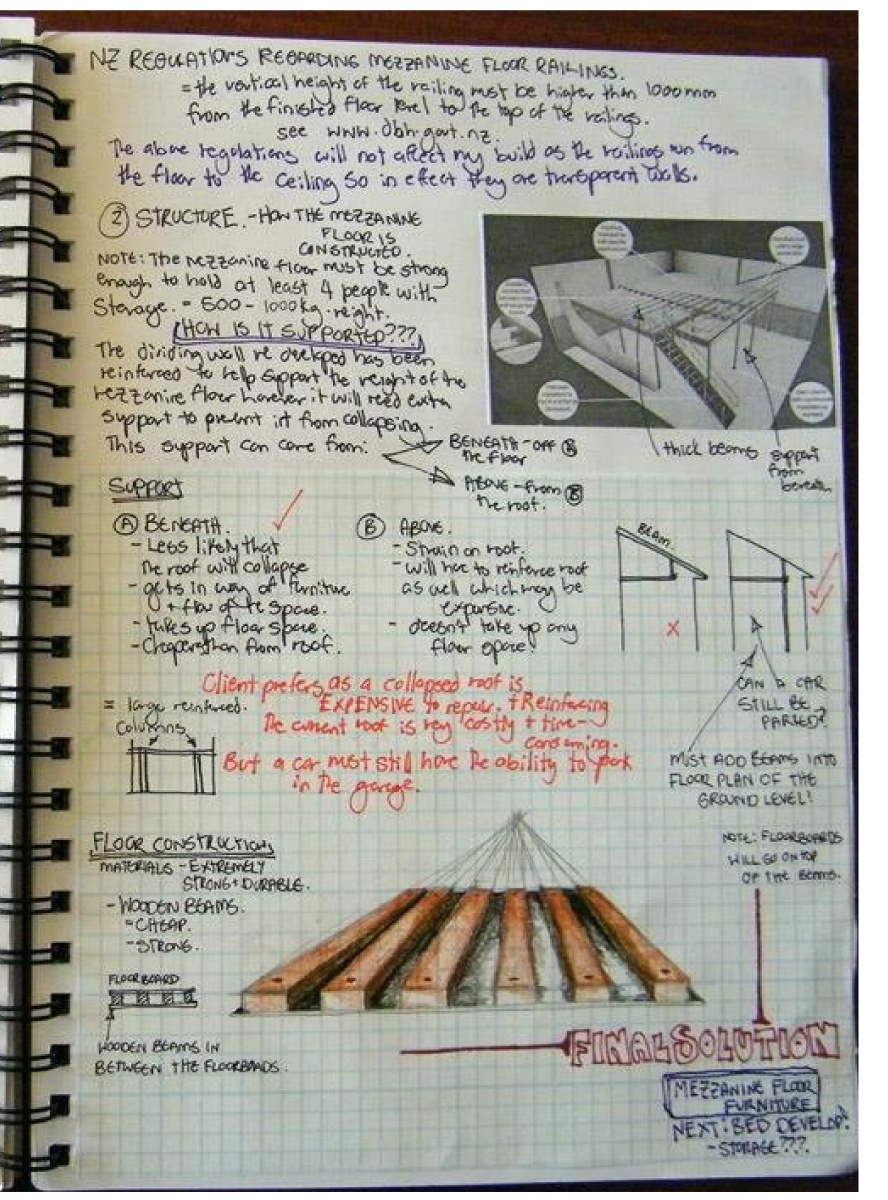 NZ REGULATIONS REGARDING MEZZANINE FLOOR RAILINGS.
= the vertical height of the railing must be higher than 1000mm
from the finished floor level to the top of the railings.
see www.dbh.govt.nz.
The above regulations will not affect my build as the railings run from
the floor to the ceiling so in effect they are transparent walls.
② STRUCTURE. - HOW THE MEZZANINE
FLOOR IS
CONSTRUCTED.
NOTE: The mezzanine floor must be strong
enough to hold at least 4 people with
storage. = 500 - 1000kg weight.
HOW IS IT SUPPORTED???
The dividing wall we developed has been
reinforced to help support the weight of the
mezzanine floor however it will need extra
support to prevent it from collapsing.
This support can come from:
BENEATH - off Ⓐ
the floor
ABOVE - from Ⓑ
the roof.
thick beams
support
from
beneath
SUPPORT
Ⓐ BENEATH.
- Less likely that
the roof will collapse
- gets in way of furniture
+ flow of the space.
- takes up floor space.
- Cheaper than from roof.
Ⓑ ABOVE.
- Strain on roof.
- will have to reinforce roof
as well which may be
expensive.
- doesn't take up any
floor space!
BEAM.
X
CAN A CAR
STILL BE
PARKED?
MUST ADD BEAMS INTO
FLOOR PLAN OF THE
GROUND LEVEL!
= large reinforced.
Columns
Client prefers, as a collapsed roof is
EXPENSIVE to repair. + Reinforcing
the current roof is very costly + time-
consuming.
But a car must still have the ability to park
in the garage.
FLOOR CONSTRUCTION,
MATERIALS - EXTREMELY
STRONG + DURABLE.
- WOODEN BEAMS.
= CHEAP.
- STRONG.
FLOORBOARD
WOODEN BEAMS IN
BETWEEN THE FLOORBOADS.
NOTE: FLOORBOARDS
WILL GO ON TOP
OF THE BEAMS.
FINAL SOLUTION
MEZZANINE FLOOR
FURNITURE
NEXT: BED DEVELOP?
- STORAGE???